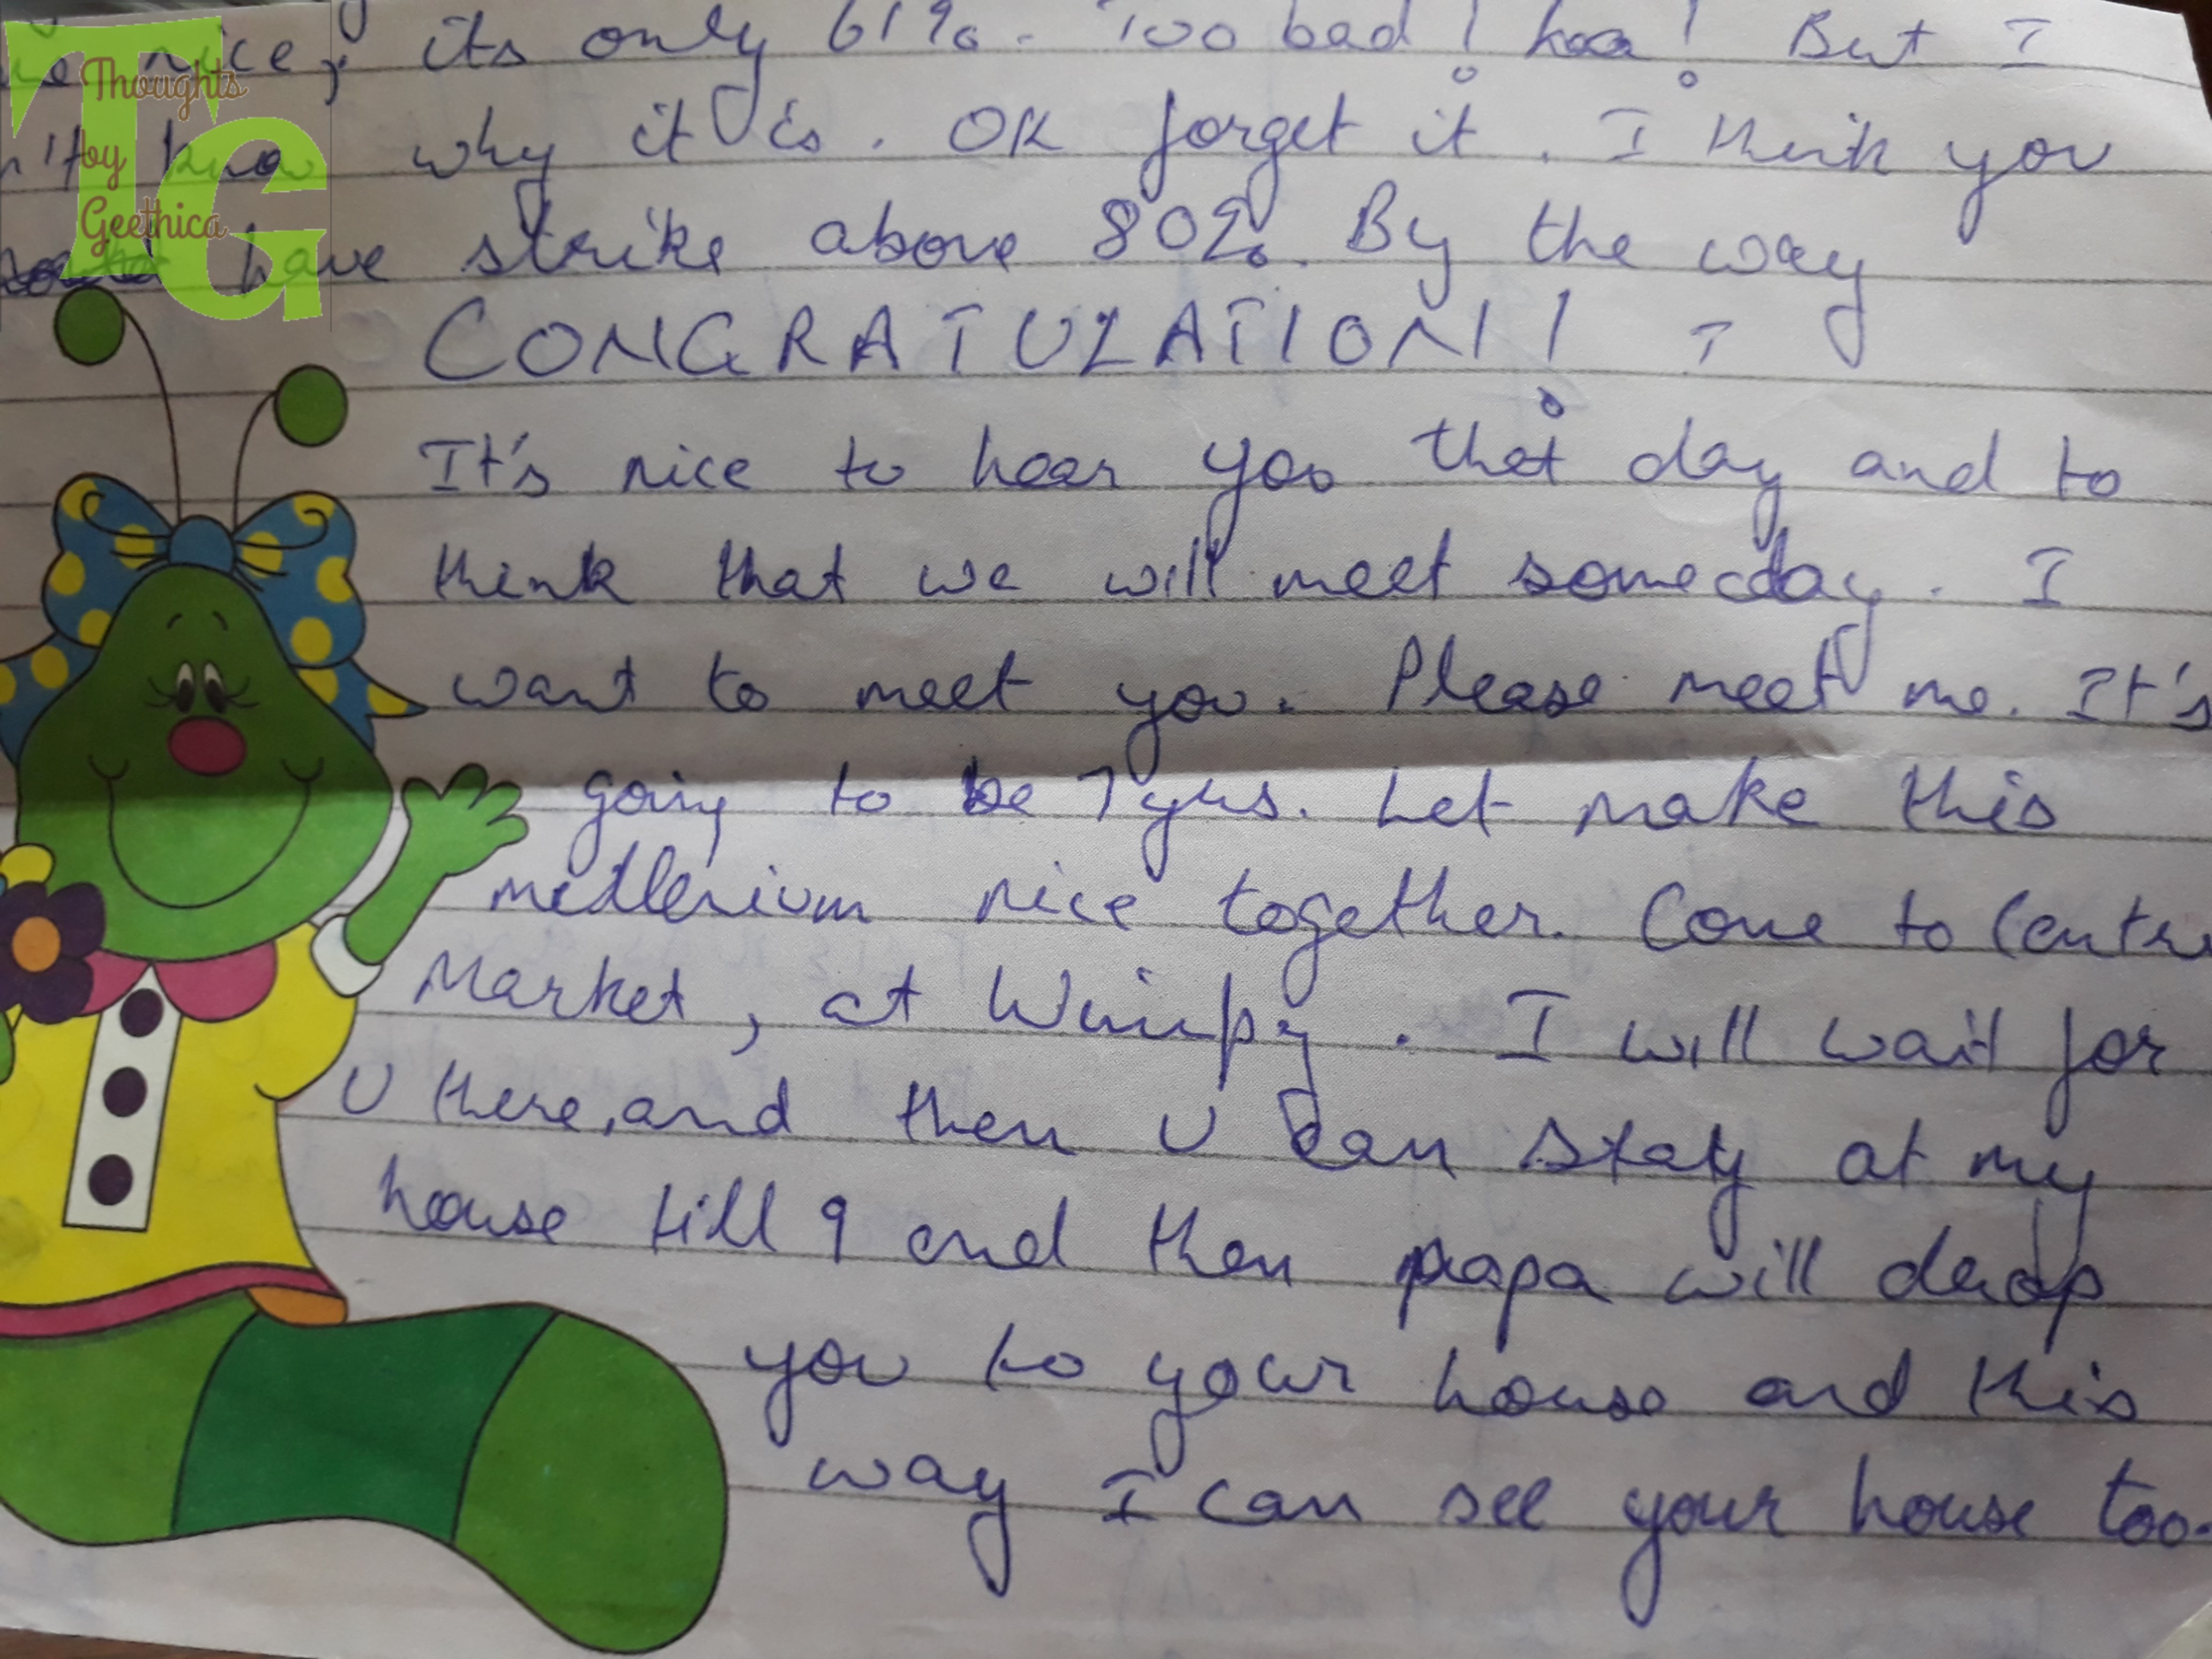 nice, its only 61%. Too bad! haa! But I
Thoughts
by
Geethica
TG
know why it is. OK forget it. I think you
have strike above 80%. By the way
CONGRATULATION!! I
It's nice to hear you that day and to
think that we will meet someday. I
want to meet you. Please meet me. It's
going to be 7 yrs. Let make this
millenium nice together. Come to Centre
Market, at Wimpy. I will wait for
U there, and then U can stay at my
house till 9 and then papa will drop
you to your house and this
way I can see your house too.